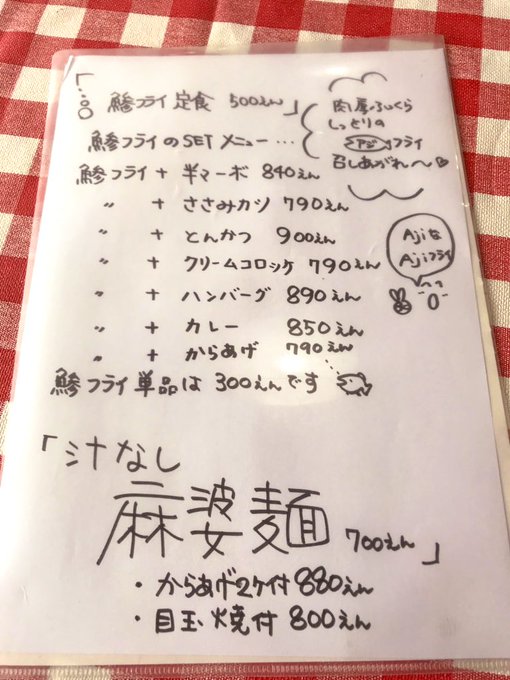 「鯵フライ定食 500えん」
鯵フライのSETメニュー…
肉厚ふっくら
しっとりの
アジフライ
召しあがれ〜♡
鯵フライ + 半マーボ 840えん
〃 + ささみカツ 790えん
〃 + とんかつ 900えん
〃 + クリームコロッケ 790えん
〃 + ハンバーグ 890えん
〃 + カレー 850えん
〃 + からあげ 790えん
Ajiな
Ajiフライ
鯵フライ単品は 300えんです
「汁なし
麻婆麺 700えん」
・からあげ2ケ付 880えん
・目玉焼付 800えん